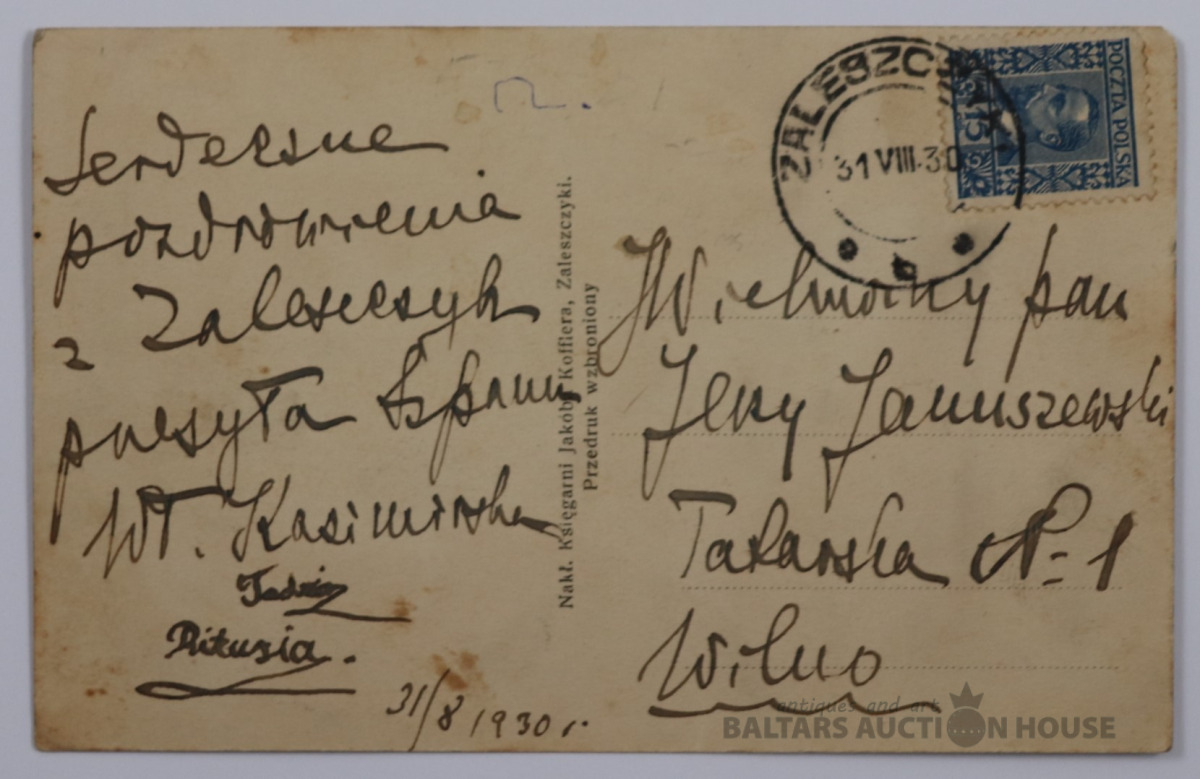 Serdeczne
pozdrowienia
z Zaleszczyk
przesyła
Wł. Kasimirska
Tadzio
Rikusia.
31/8 1930 r.
Nakł. Księgarni Jakóba Koffiera, Zaleszczyki.
Przedruk wzbroniony
ZALESZCZYKI
31 VIII.30
b
POCZTA POLSKA
15
Wielmożny pan
Jerzy Januszewski
Tatarska № 1
Wilno
antiques and art
BALTARS AUCTION HOUSE